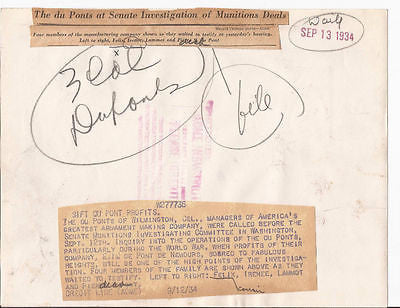 The du Ponts at Senate Investigation of Munitions Deals
Four members of the manufacturing company shown as they waited to testify at yesterday's hearing.
Left to right, Felix, Irenee, Lammot and Pierre du Pont
Daily
SEP 13 1934
Duponts
file
W277736
SIFT DU PONT PROFITS.
THE DU PONTS OF WILMINGTON, DEL., MANAGERS OF AMERICA'S
GREATEST ARMAMENT MAKING COMPANY, WERE CALLED BEFORE THE
SENATE MUNITIONS INVESTIGATING COMMITTEE IN WASHINGTON,
SEPT. 12TH. INQUIRY INTO THE OPERATIONS OF THE DU PONTS,
PARTICULARLY DURING THE WORLD WAR, WHEN PROFITS OF THEIR
COMPANY, E.I. DU PONT DE NEMOURS, SOARED TO FABULOUS
HEIGHTS, WILL BE ONE OF THE HIGH POINTS OF THE INVESTIGA-
TION. FOUR MEMBERS OF THE FAMILY ARE SHOWN ABOVE AS THEY
WAITED TO TESTIFY. LEFT TO RIGHT: FELIX, IRENEE, LAMMOT
AND PIERRE
CREDIT LINE (ACME) 9/12/34 cousin